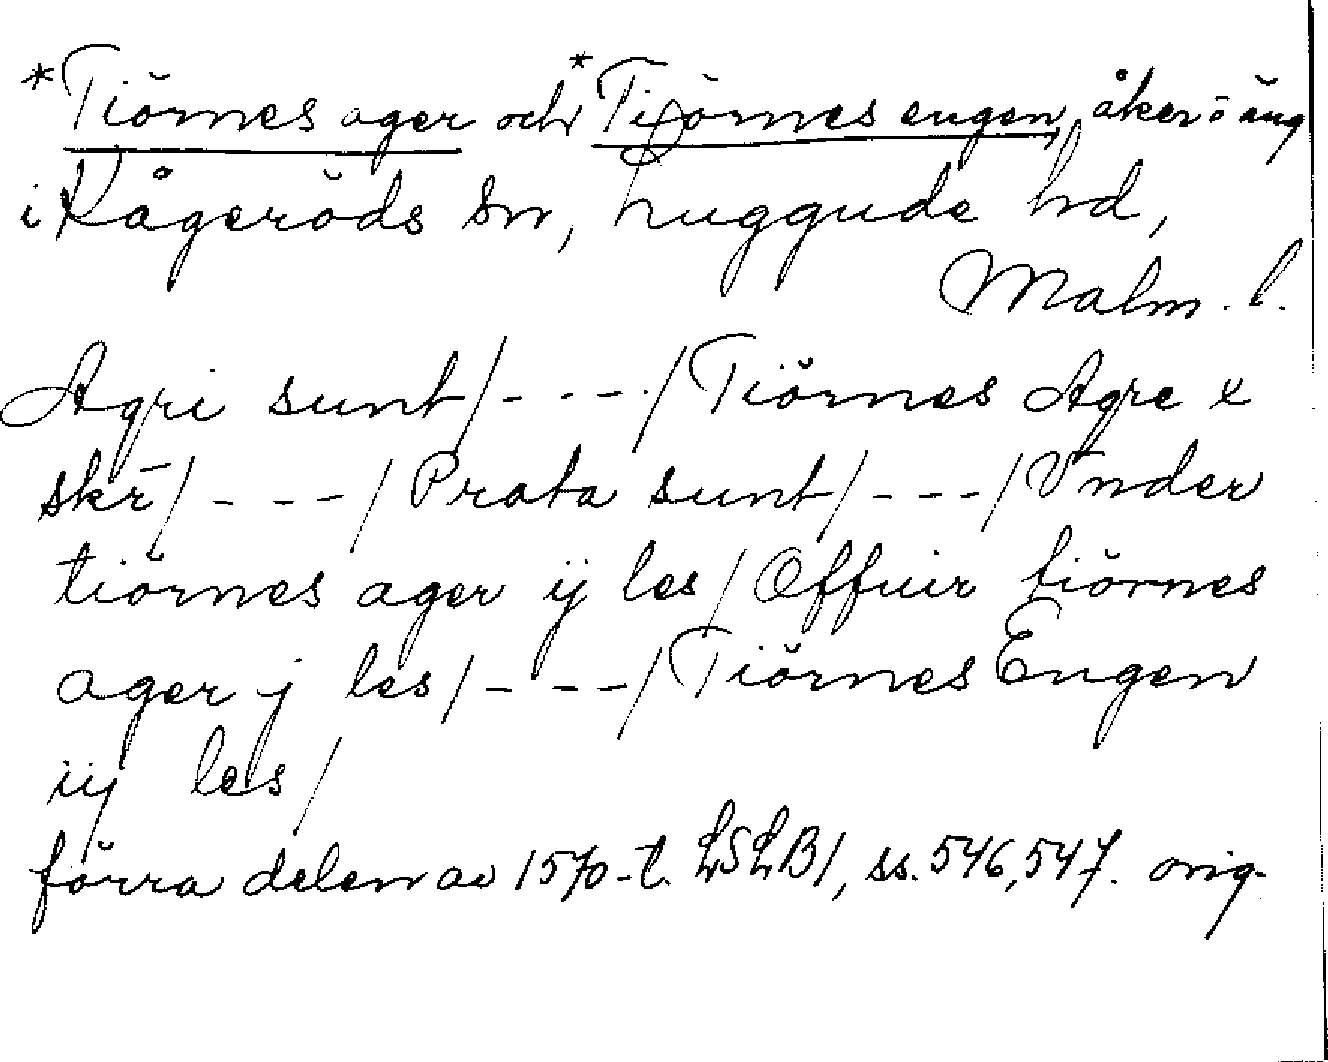 *Tiörnes ager och *Tiörnes engen, åker o äng
i Kågeröds sn, Luggude hd,
Malm. l.
Agri sunt/- - - -/Tiörnes Agre x
skr̄/- - - -/Prata sunt/- - - -/Vnder
tiörnes ager ij les/Offuir tiörnes
ager j les/- - - -/Tiörnes Engen
iij les/
förra delen av 1570-t. LSLB1, ss. 546,547. orig.